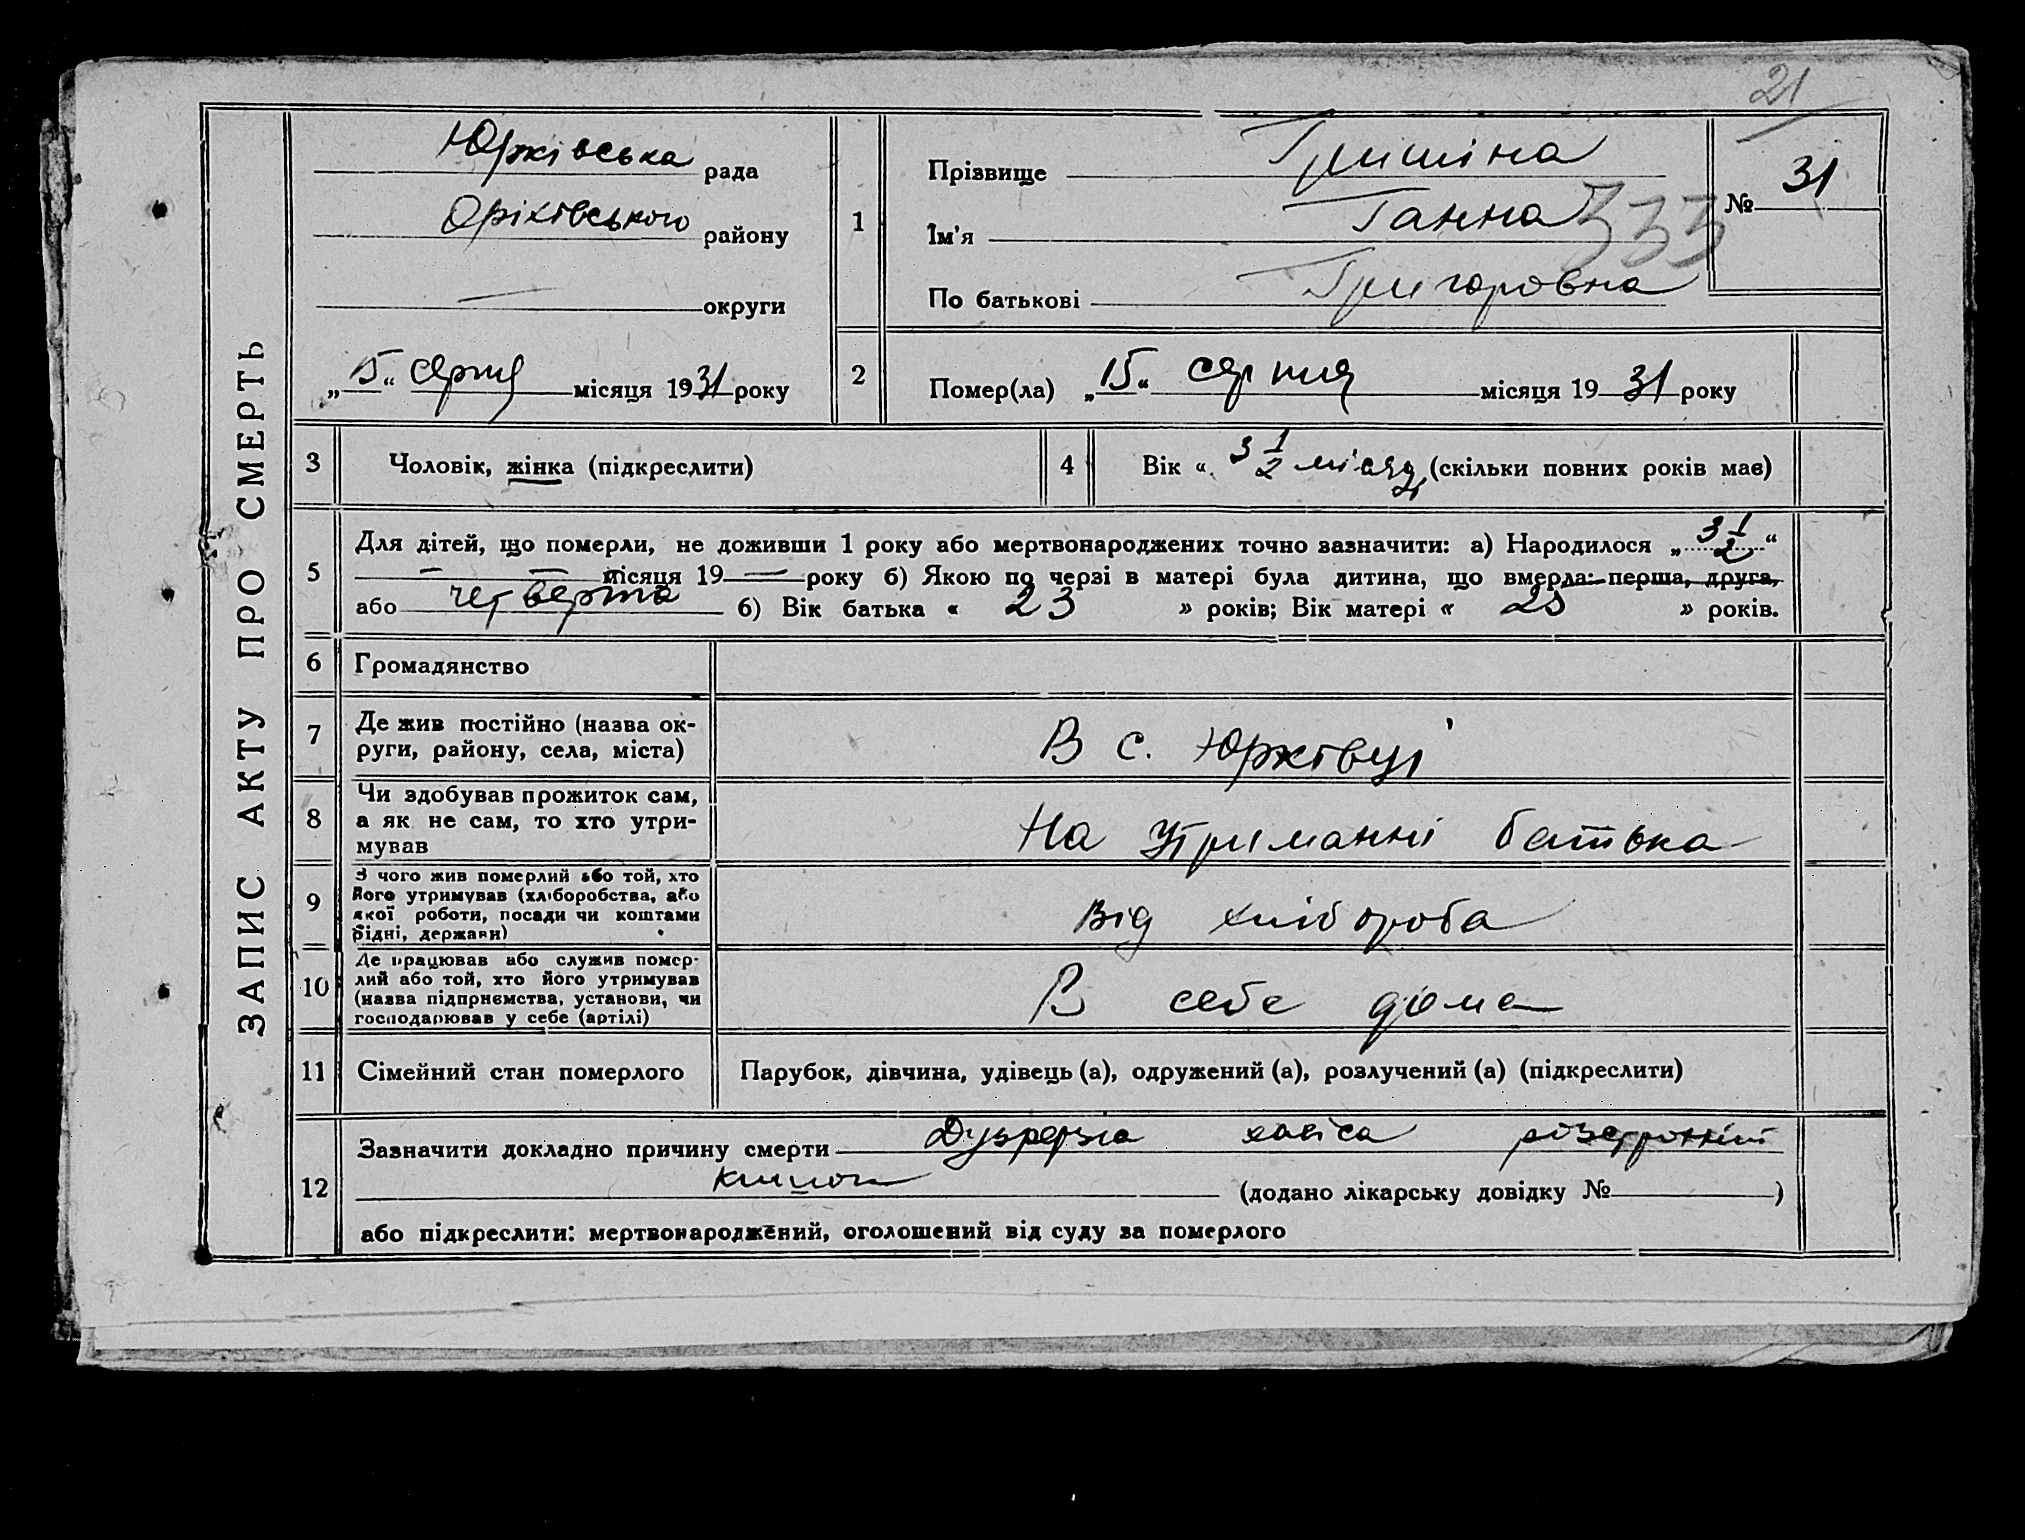 21
ЗАПИС АКТУ ПРО СМЕРТЬ
Юрківська рада
Оріхівського району
округи
„15“ серпня місяця 1931 року
1
Прізвище Гришіна
Ім’я Ганна
По батькові Григоровна
№ 31
333
2
Помер(ла) „15“ серпня місяця 1931 року
3
Чоловік, жінка (підкреслити)
4
Вік « 3 1/2 місяця (скільки повних років має)
5
Для дітей, що померли, не доживши 1 року або мертвонароджених точно зазначити: а) Народилося „3 1/2“
— — місяця 19 — року б) Якою по черзі в матері була дитина, що вмерла: перша, друга,
або четверта б) Вік батька « 23 » років; Вік матері « 25 » років.
6
Громадянство
7
Де жив постійно (назва ок-
руги, району, села, міста)
В с. Юрківці
8
Чи здобував прожиток сам,
а як не сам, то хто утри-
мував
На утриманні батька
9
З чого жив померлий або той, хто
його утримував (хліборобства, або
якої роботи, посади чи коштами
рідні, держави)
Від хлібороба
10
Де працював або служив помер-
лий або той, хто його утримував
(назва підприємства, установи, чи
господарював у себе (артілі)
В себе дома
11
Сімейний стан померлого
Парубок, дівчина, удівець (а), одружений (а), розлучений (а) (підкреслити)
12
Зазначити докладно причину смерти
кишок (додано лікарську довідку № )
або підкреслити: мертвонароджений, оголошений від суду за померлого